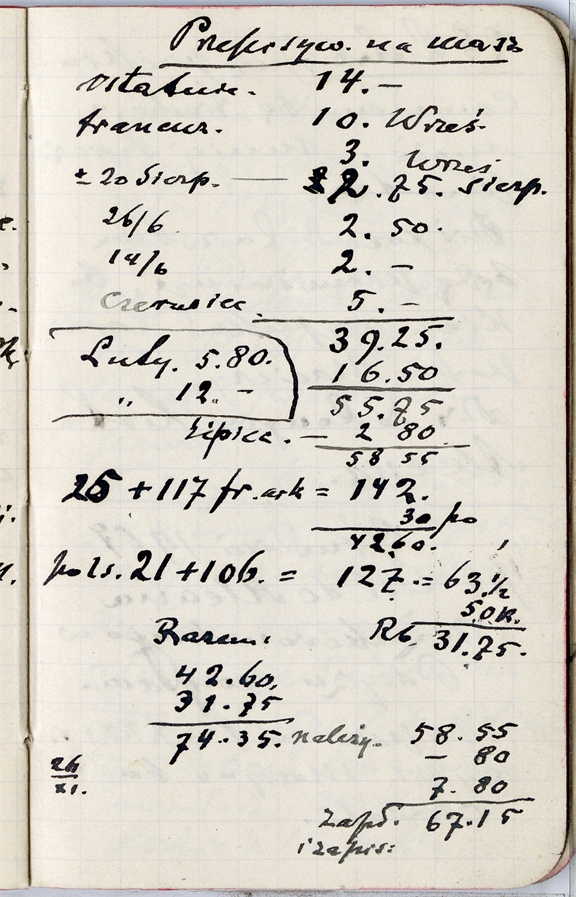 Przepisyw. na masz
ostatnie. 14.—
francuz. 10. Wrześ.
3. Wrześ
± 20 Sierp. — 2.75. Sierp.
26/6 2.50.
14/6 2.—
Czerwiec. 5.—
39.25.
Luty. 5.80. 16.50
„ 12.— 55.75
lipiec. — 2 80.
58 55
25 + 117 fr. ark = 142.
30 po
4260.
pols. 21 + 106. = 127. = 63.½
50 k.
Razem. Rb 31.75.
42.60.
31.75
74.35. należy. 58.55
— 80
26/XI. 7.80
Zapł. 67.15
i zapis: